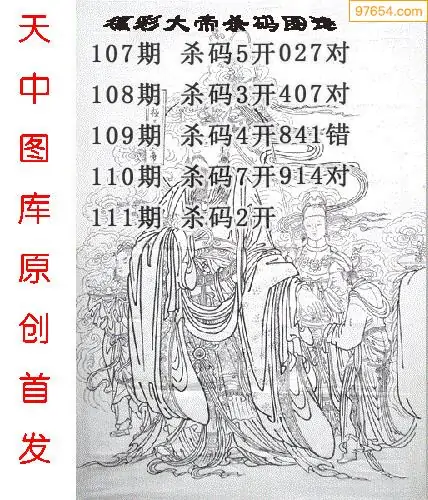 97654.com
福彩大帝杀码图谜
107期 杀码5开027对
108期 杀码3开407对
109期 杀码4开841错
110期 杀码7开914对
111期 杀码2开
天中图库原创首发